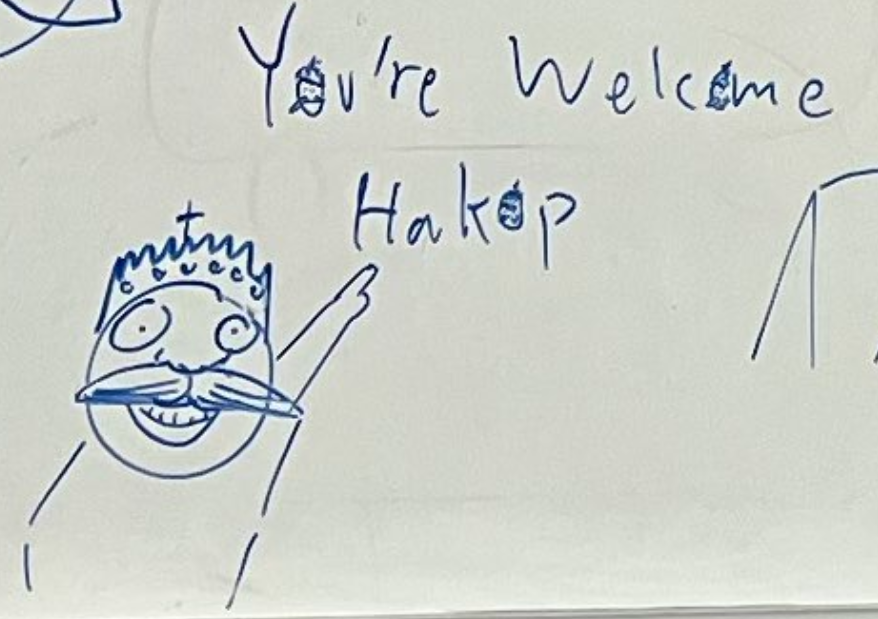 You're Welcome
Hakop